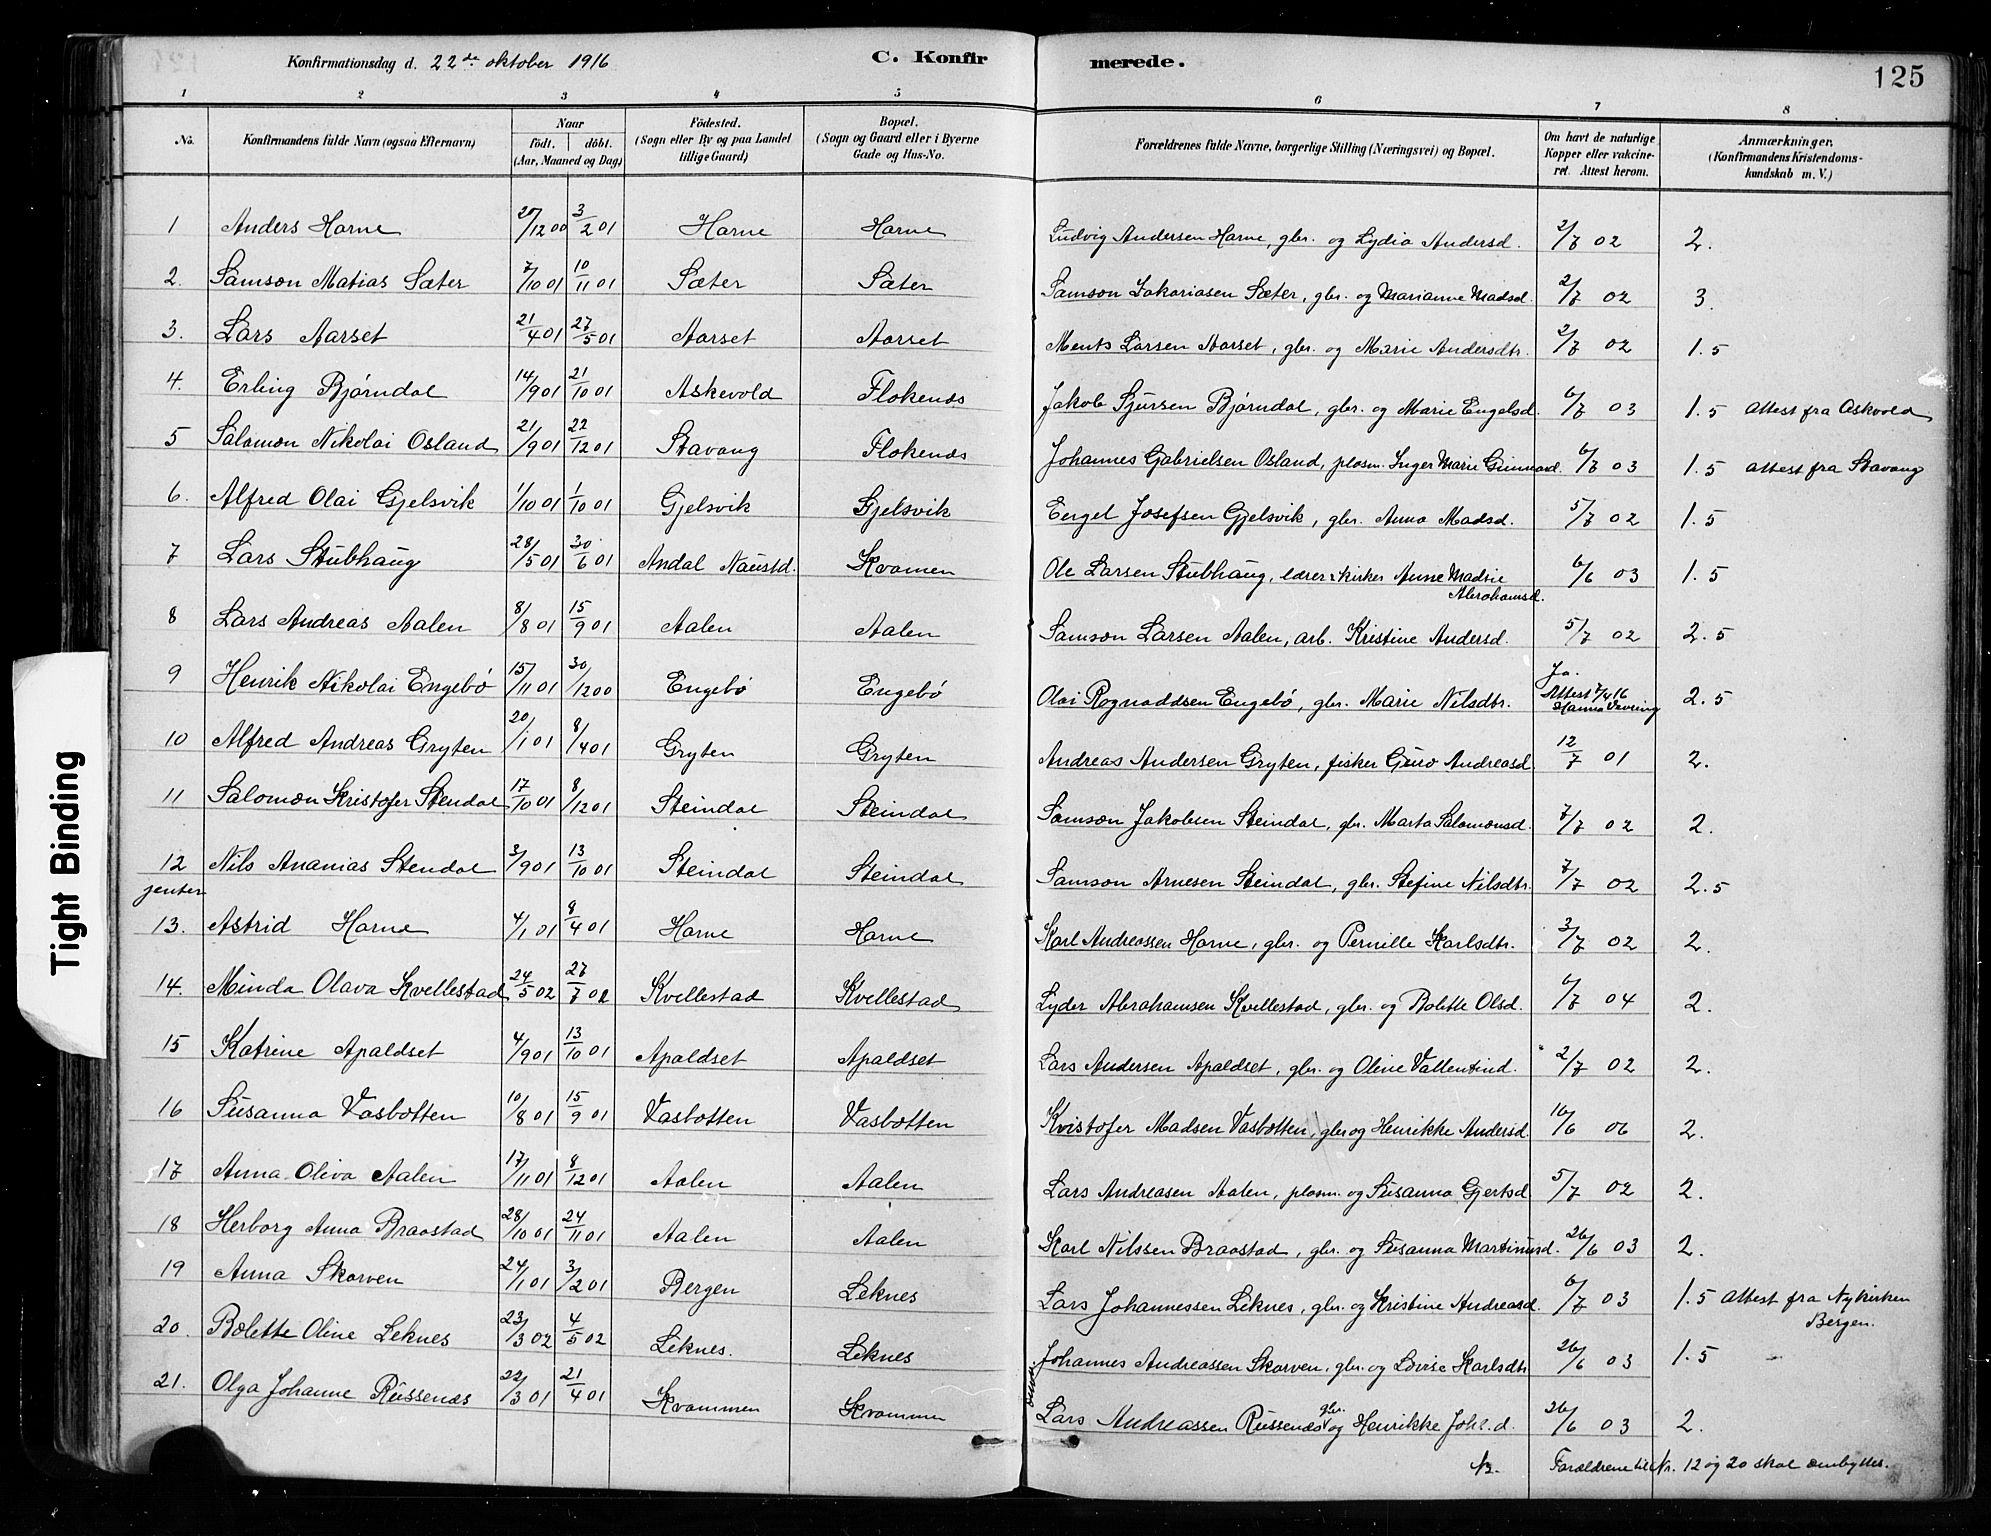 Konfirmationsdag d. 22de oktober 1916 C. Konfirmerede. 125
1 2 3 4 5 6 7 8
No. Konfirmandens fulde Navn (ogsaa Efternavn) Naar födt. döbt. (Aar, Maaned og Dag) Födested. (Sogn eller By og paa Landet tillige Gaard) Bopæl. (Sogn og Gaard eller i Byerne Gade og Hus-No. Forældrenes fulde Navne, borgerlige Stilling (Næringsvei) og Bopæl. Om havt de naturlige Kopper eller vakcineret. Attest herom. Anmærkninger. (Konfirmandens Kristendomskundskab m. V.)
1 Anders Horne 20/12 00 3/2 01 Horne Horne Ludvig Andersen Horne, gbr. og Lydia Andersd. 2/7 02 2.
2. Samson Matias Sæter 7/10 01 10/11 01 Sæter Sæter Samson Sakariasen Sæter, gbr. og Marianne Madsd. 2/7 02 3.
3. Lars Aarset 21/4 01 27/5 01 Aarset Aarset Ments Larsen Aarset, gbr. og Marie Andersdtr. 2/7 02 1.5
4. Erling Bjørndal 14/9 01 21/10 01 Askevold Flokenes Jakob Sjursen Bjørndal, gbr. og Marie Engelsd. 6/7 03 1.5 attest fra Askvold
5 Salomon Nikolai Osland 21/9 01 22/12 01 Stavang Flokenæs Johannes Gabrielsen Osland, plasm. Inger Marie 6/7 03 1.5 attest fra Stavang
6. Alfred Olai Gjelsvik 1/10 01 1/10 01 Gjelsvik Gjelsvik Engel Josefsen Gjelsvik, gbr. Anna Madsd. 5/7 02 1.5
7 Lars Stubhaug 28/5 01 30/6 01 Andal Naustd. Kvamen Ole Larsen Stubhaug, lærer & kirkes Anne Madsie Abrahamsd. 6/6 03 1.5
8 Lars Andreas Aalen 8/8 01 15/9 01 Aalen Aalen Samson Larsen Aalen, arb. Kristine Andersd. 5/7 02 2.5
9 Henrik Nikolai Engebö 15/11 01 30/12 00 Engebö Engebö Olai Rognaldsen Engebö, gbr. Marie Nilsdtr. Ja. Attest 7/4 16 Hanna Vevring 2.5
10 Alfred Andreas Gryten 20/1 01 8/4 01 Gryten Gryten Andreas Andersen Gryten, fisker Guro Andreasd. 12/7 01 2.
11 Salomon Kristofer Stendal 17/10 01 8/12 01 Steindal Steindal Samson Jakobsen Steindal, gbr. Marta Salomonsd. 7/7 02 2.
12 Nils Ananias Stendal 3/9 01 13/10 01 Steindal Steindal Samson Arnesen Steindal, gbr. Stefine Nilsdtr. 7/7 02 2.5
jenter
13. Astrid Horne 4/1 01 8/4 01 Horne Horne Karl Andreassen Horne, gbr. og Pernille Karlsdtr. 3/7 02 2.
14. Minda Olava Kvellestad 24/5 02 27/7 02 Kvellestad Kvellestad Lyder Abrahamsen Kvellestad, gbr. og Bolette Olsd. 6/7 04 2.
15 Katrine Apaldset 4/9 01 13/10 01 Apaldset Apaldset Lars Andersen Apaldset, gbr. og Oline Vallentind. 2/7 02 2.
16 Susanna Vasbotten 10/8 01 15/9 01 Vasbotten Vasbotten Kristofer Madsen Vasbotten, gbr og Henrikke Andersd. 16/6 06 2.
17 Anna Oliva Aalen 17/11 01 8/12 01 Aalen Aalen Lars Andreasen Aalen, plasm. og Susanna Gjertsd 5/7 02 2.
18 Herborg Anna Braastad 28/10 01 24/11 01 Aalen Aalen Karl Nilssen Braastad, gbr. og Susanna Martinusd. 26/6 03 2.
19 Anna Skorven 24/1 01 3/2 01 Bergen Leknes Lars Johannessen Leknes, gbr. og Kristine Andreasd. 6/7 03 1.5 attest fra Nykirken Bergen.
20. Bolette Oline Leknes 23/3 02 4/5 02 Leknes. Leknes Johannes Andreassen Skorven, gbr. og Lovise Karlsdtr 26/6 03 1.5
21. Olga Johanne Russenæs 22/3 01 21/4 01 Kvammen Kvammen Lars Andreassen Russenæs gbr. og Henrikke Joh. d. 26/6 03 2.
Forældrene til Nr. 12 og 20 skal ombyttes.
Tight Binding